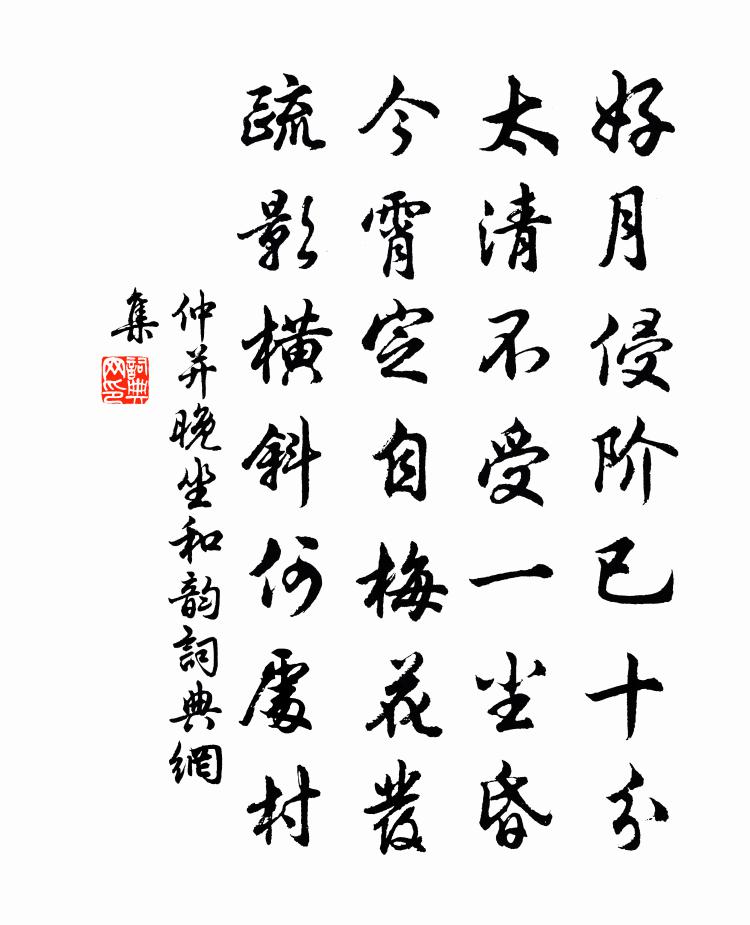 好月侵阶已十分
太清不受一尘昏
今霄定自梅花發
疏影橫斜何處村
仲并晚坐和韵詞典網
集
詞典网印